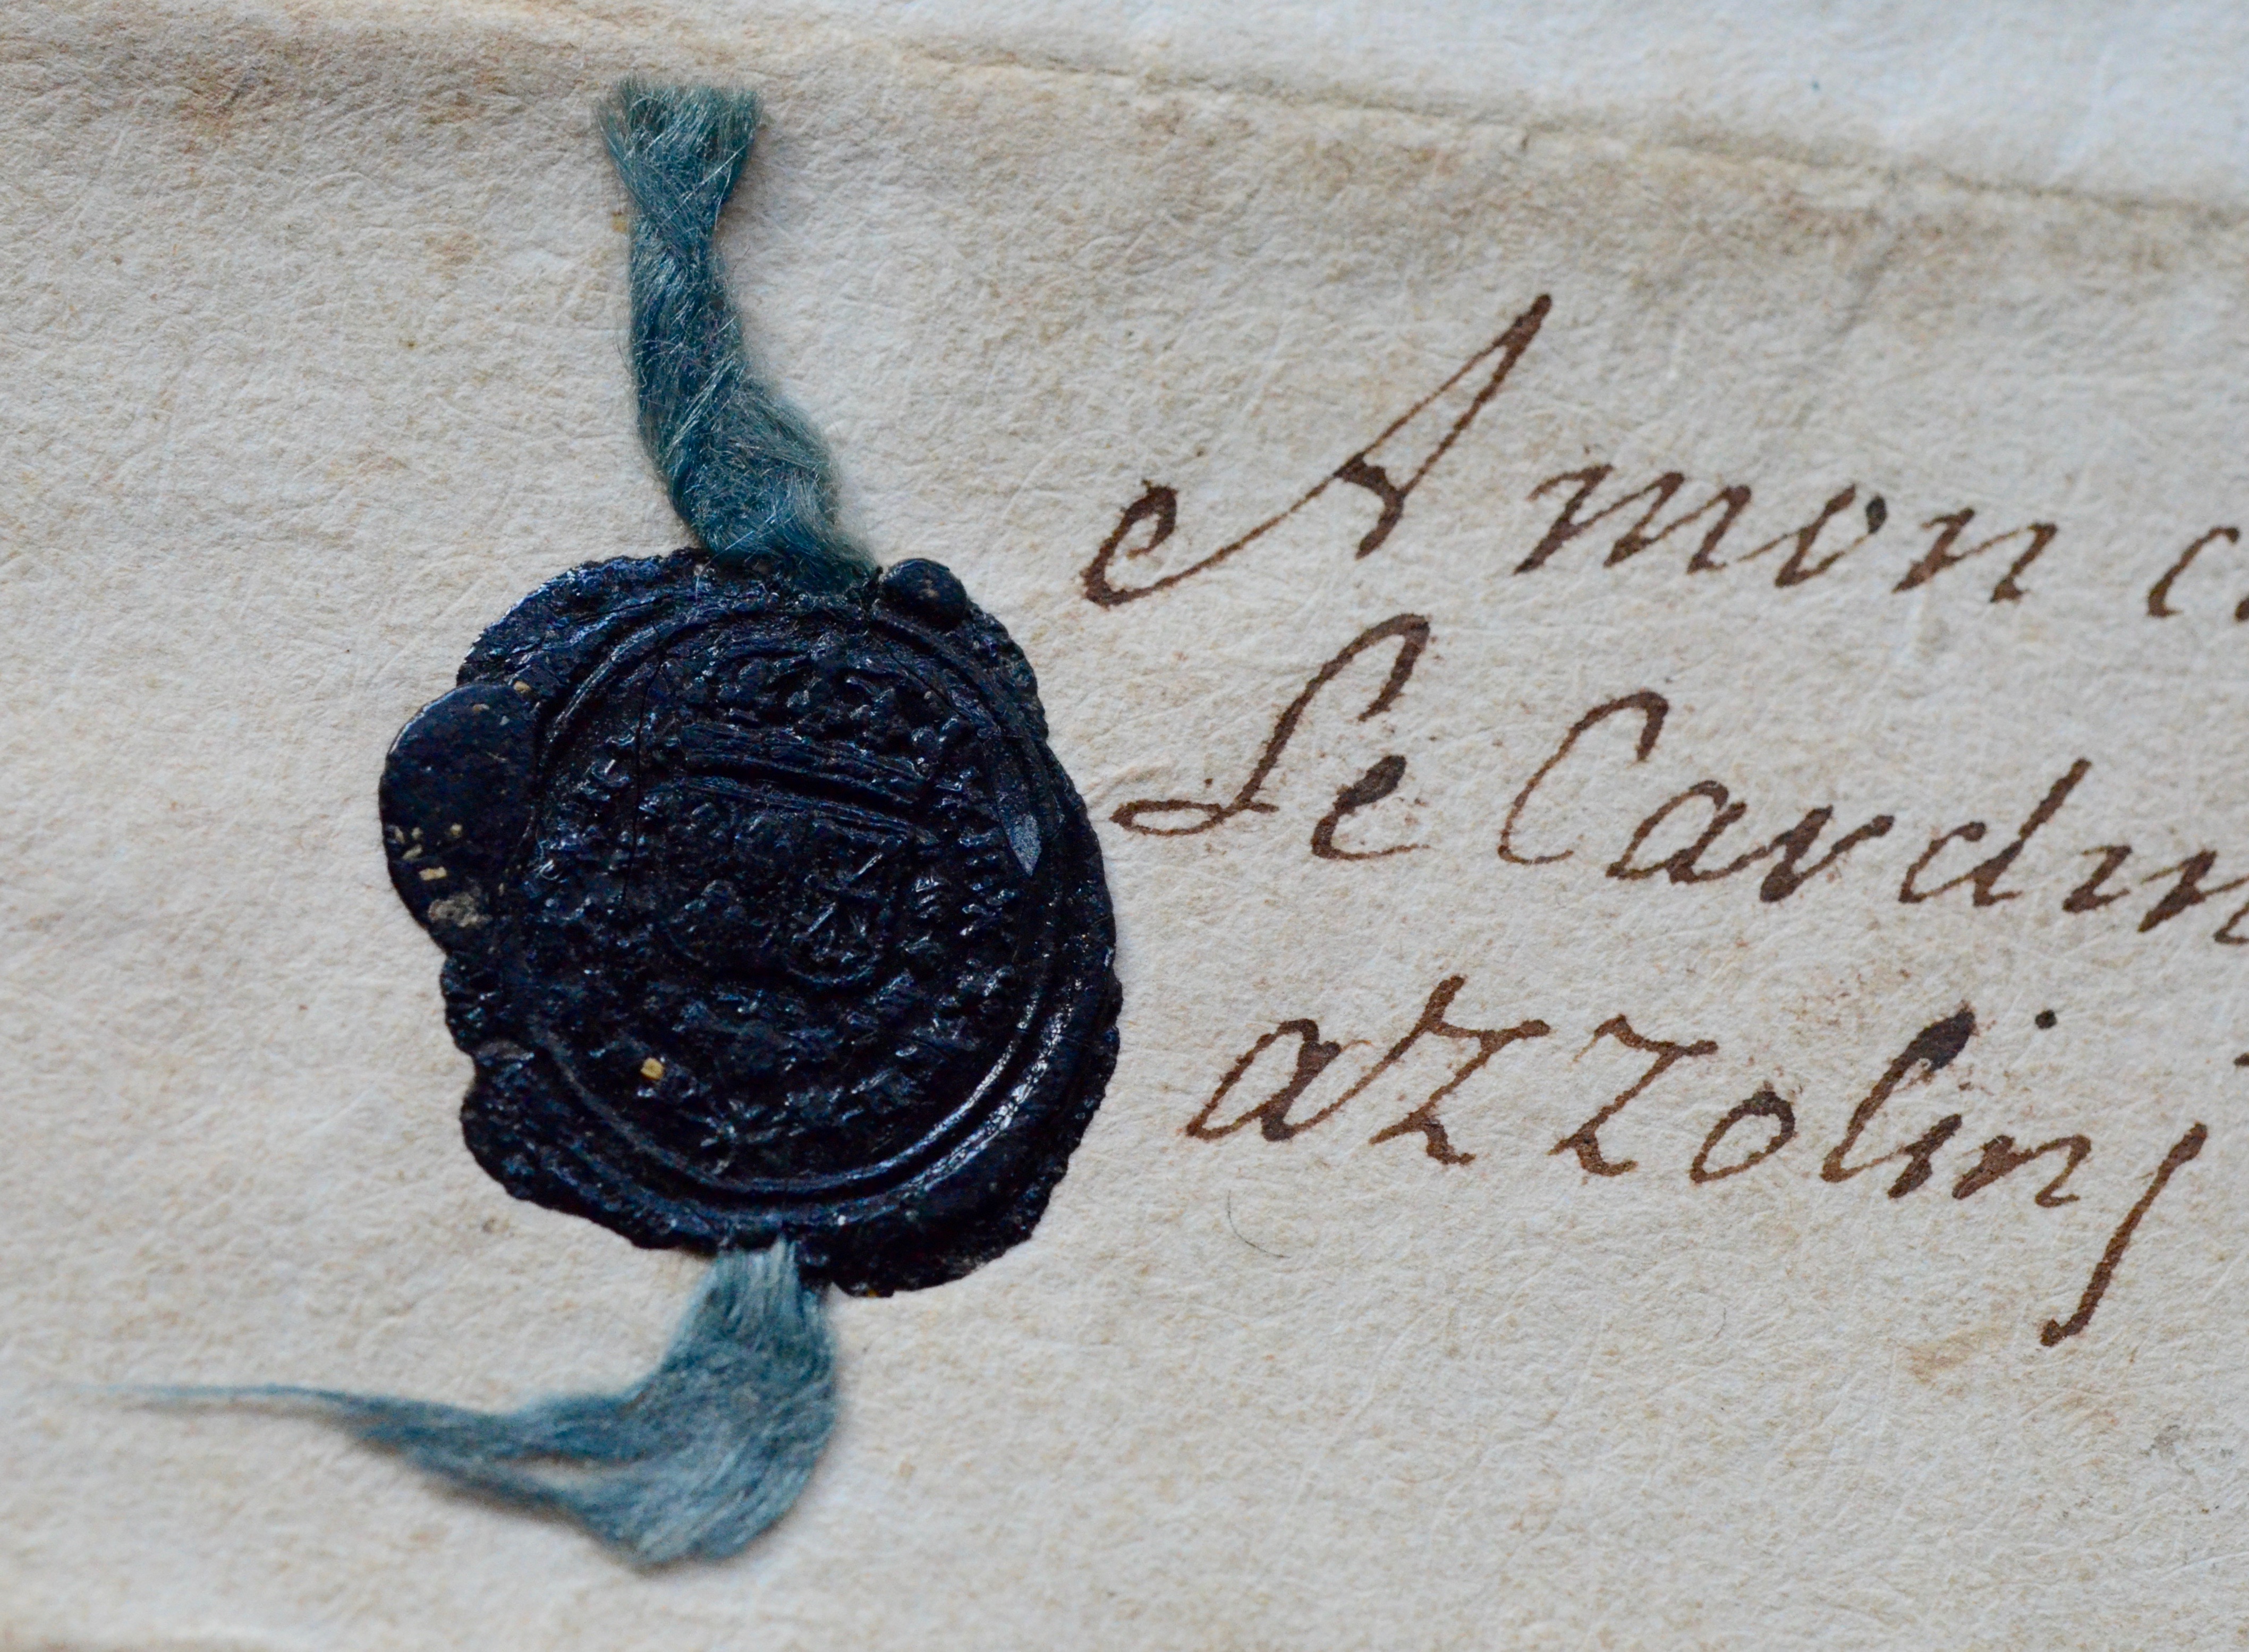 A mon c
Le Cardin
azzolinj